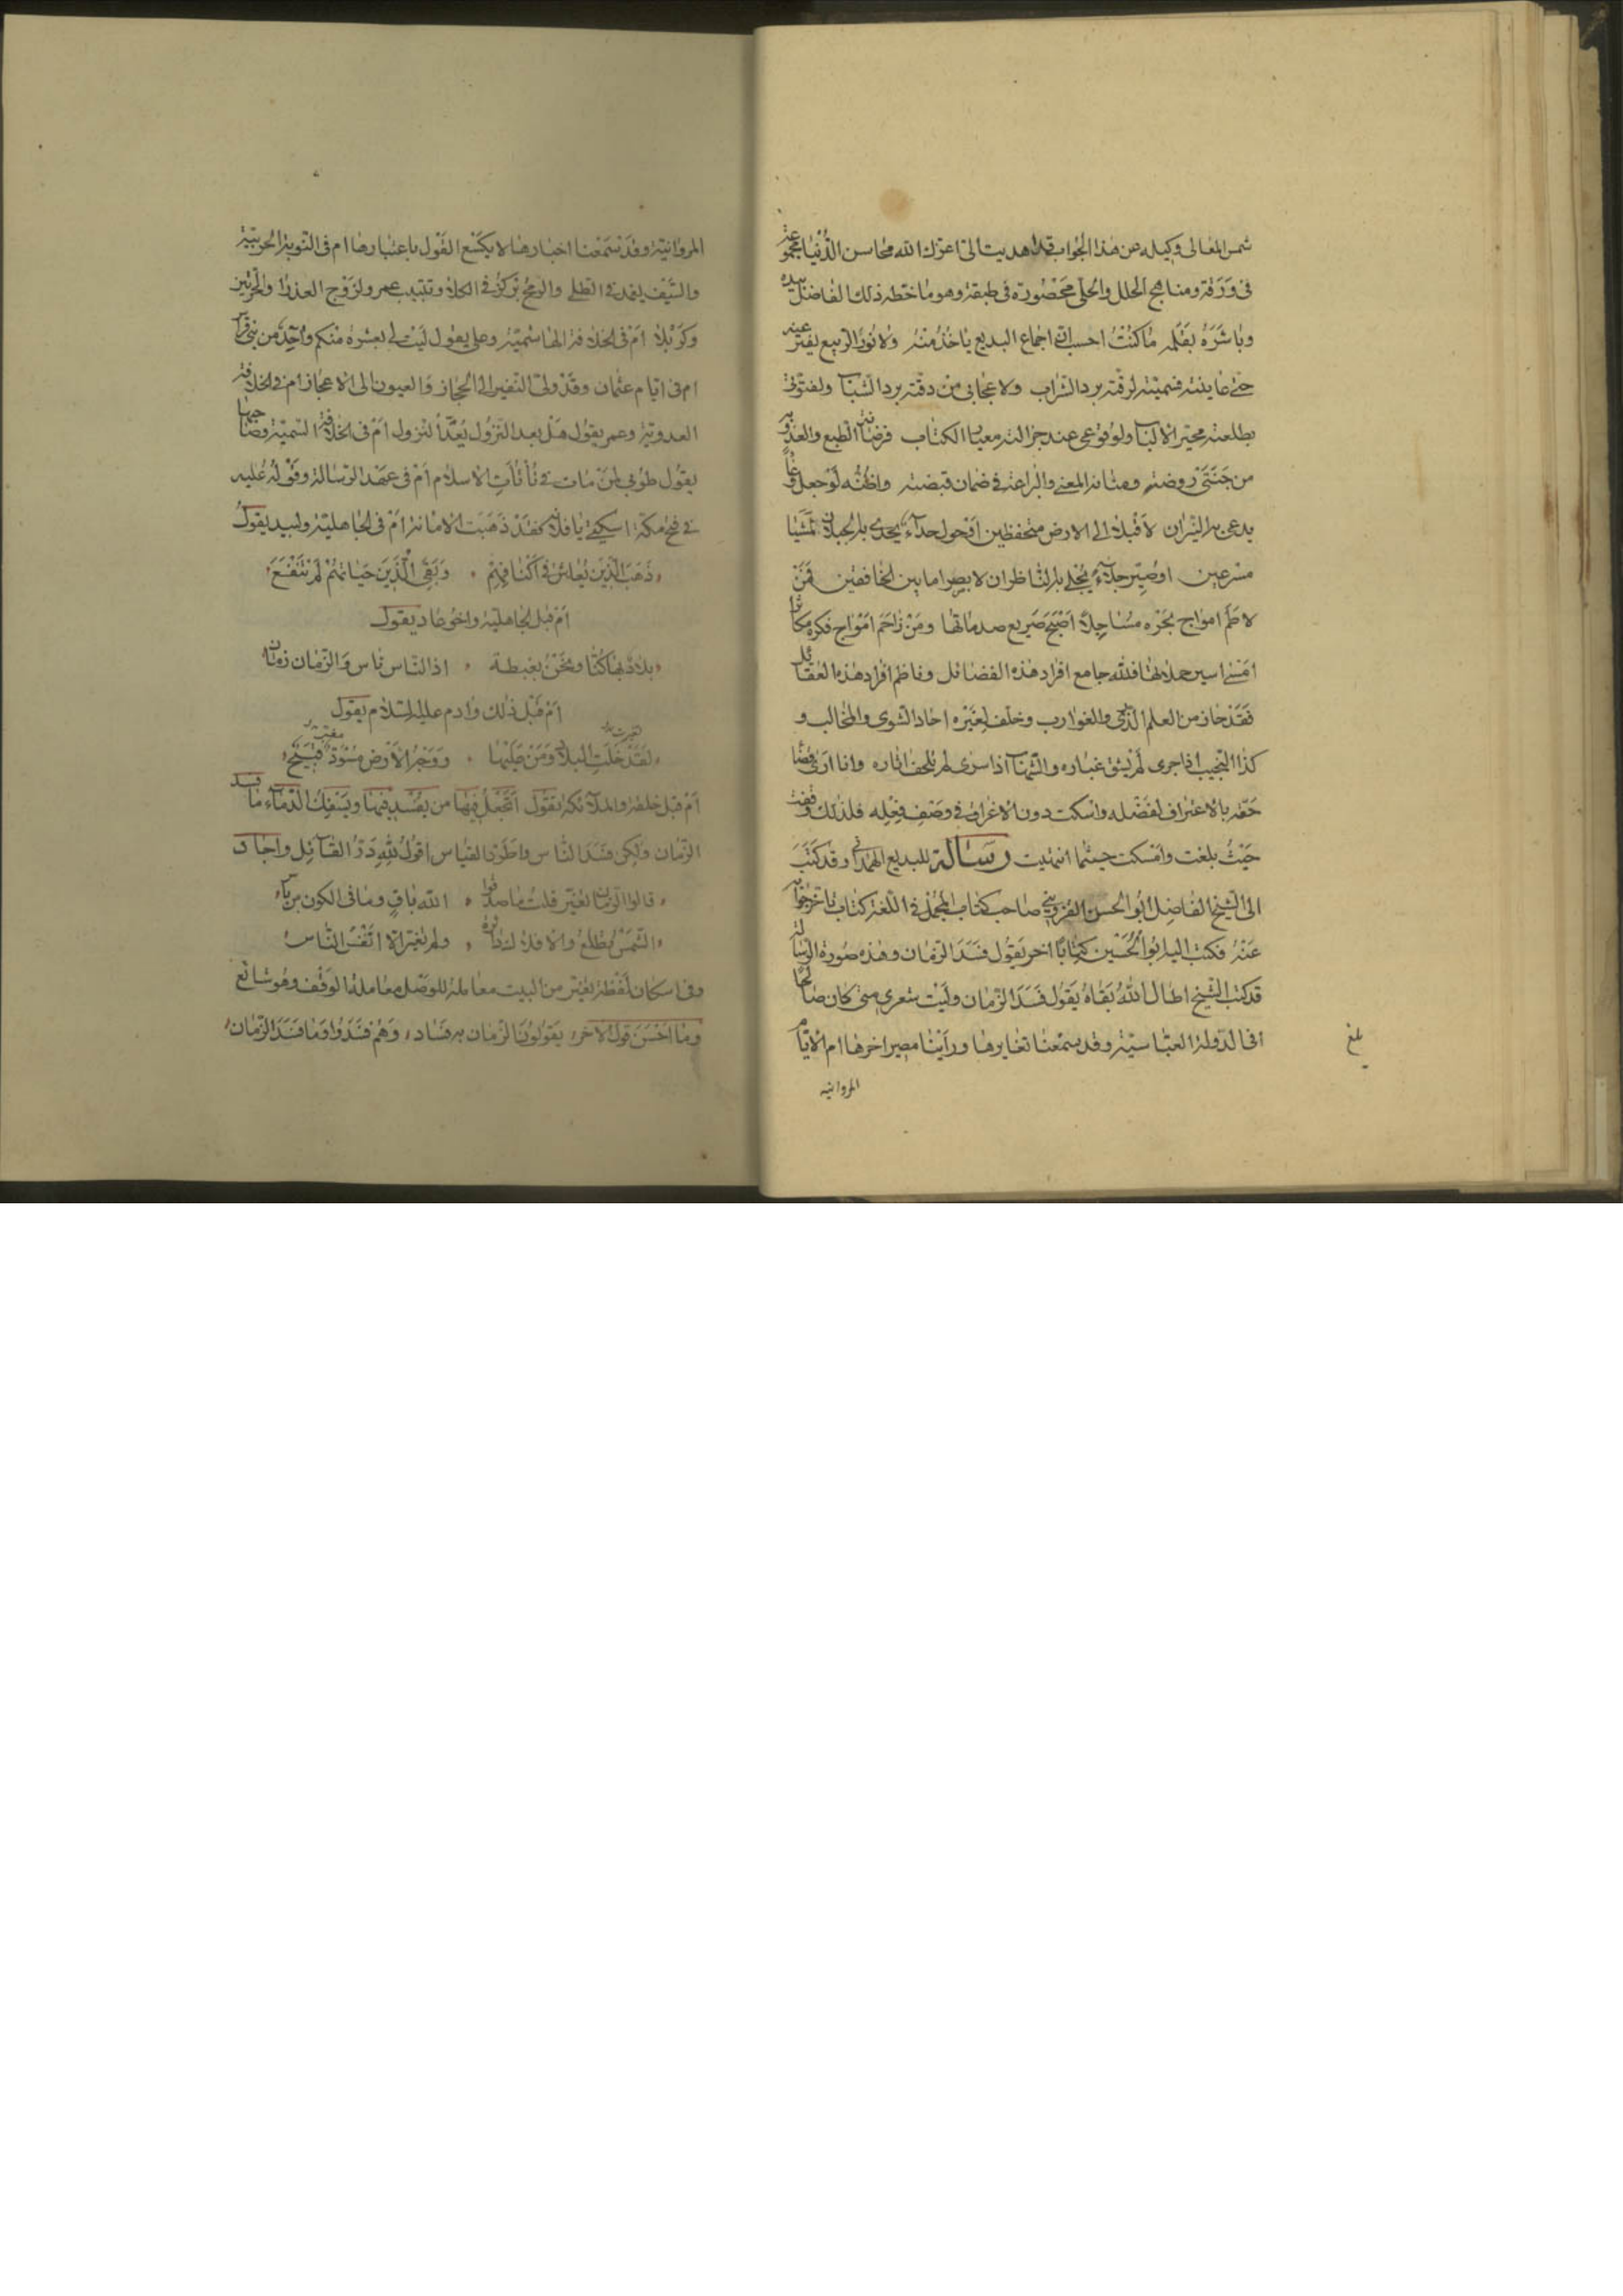 شمس المعالى وكيله عن هذا الجواب قد اهديت الىّ اعزك الله محاسن الدُّنْيَا مجموعة
فى وَرَقة ومناهج الحلل والحلىّ مَحْصُورَة فى طبقة وهو ما خطّه ذلك الفاضل بيده
وبَاشَرَهُ بقَلمِه مَا كنْتُ احسب انّ اجماع البديع يَاخذ منْهُ ولا نَوْرَ الرّبيع يفتر عنه
حتّى عاينته فسميته لرقّته برد الشراب ولاعجابى من دقّته برد الشباب ولفتونى
بطلعته محيّر الالباب ولوقوعى عند جزالته معيار الكتاب فرضَاب الطبع والعذوبه
من جَنَّتَىْ روضته ومتانة المعنى والبراعة فى ضمان قبضته واظنُّه لَوْ جعل فماً
يدعى به النيران لاَقْبلا الى الارض منخفظين اَوْ حول حداءً يحدى به الجبلان لمشيا
مسرعين او صُيّر جلآءً يُجْلى به الناظران لابصرا ما بين الخافقين فمَنْ
لاطَمَ امواج بَحْره مسَاجِلاً اَصْبَحَ صَريع صدماتها ومَنْ زاحَمَ امْوَاج فكره مكاثرا
امْسٰى اسير حملاتها فللّٰه جامع افراد هٰذه الفضائل وناظم افراد هٰذه العقائل
فقَدْ حاز من العلم الذرى والغوارب وخلّف لِغَيْره احاد الشوى والمخالب و
كذا النجيب اذا جرى لَمْ يشق غباره والشهاب اذا سرى لم تلحق اثاره وانا ارى قضا
حَقّه بالاعتراف لفضْله واسكت دون الاغراق فى وصْفِ فِعْلِه فلذلك وقفت
حَيْثُ بلغت وامْسكت حيثما انتهيت رسَالة للبديع الهمدانى وقد كَتَبَ
الى الشيخ الفاضِل ابُو الحسن القزوينى صاحب كتاب المجمل فى اللغة كتاب تاخر جوابه
عَنْهُ فكتب اليه ابُو الْحُسَيْن كِتَابًا اخر يَقُول فسَدَ الزمَان وهٰذه صُورة الرسالة
قد كتب الشيخ اطال اللهُ بَقَاهُ يَقُول فَسَدَ الزمَان ولَيْت شعرى متى كان صالحًا
افى الدولة العبّاسيّة وقد سَمِعْنا تغايرها ورَاَيْنَا مصير اخرها ام الايّام
بلغ
المروانيه
المروانيّة وقَدْ سَمعْنا اخبارها لا يكسع القَوْل باعتبارها ام فى النوبة الحربيّة
والسَّيْف يغمد فى الطلى والرمح يُركزُ فى الكلا وتبتب عمر ولزوج العذرا والحرتين
وكَرْبلا امْ فى الخلافة الهاشميّة وعلى يقول لَيْت لى بعشرة منكم واحِدًا من بنى فراس
ام فى ايّام عثمان وقَدْ ولّى النفير الى الحجاز وَالعيون الى الاعجاز ام فى الخلافة
العدويّة وعمر يقول هَلْ بعد النزُول يُعَدُّ النزول اَمْ فى الخلافة التيميّة وصاحبها
يقول طُوبى لمنْ مات فى نَأْنَأتِ الاسلام اَمْ فى عهْد الرّسالة وقوله عُليه
فى فتح مكّة اسكتى يا فلانه فقَدْ ذَهَبت الامانة امْ فى الجاهليّة ولبيد يقول
ذَهَبَ الّذِيْن يُعاشُ فى اَكْنَافِهِمْ وَبَقِىَ الَّذِيْنَ حَيَاتهُمْ لَمْ تنْفَعَ
اَمْ قبل الجاهليّة واخُو عاد يقول
بلادٌ بهَا كُنّا ونَحْنُ بغبطة اذ النّاس ناس وَالزمَان زمان
اَمْ قَبْل ذٰلك وادم عليه السّلام يقول
لَقَدْ خَلَتِ البلاد ومَنْ عَلَيْهَا ووَجْهُ الاَرْض مُسْوَدٌ قَبِيْح
تغيرت
مغبر
اَمْ قبل خلقه والملآئكة تقول اَتَجْعَلُ فِيْهَا من يفْسد فِيْهَا ويَسْفك الدّمآء ما فسد
الزمان ولكن فسَدَ الناس واطّرد القياس اقولُ للهِ دَرُّ القآئِل واجاد
قالوا الزمان تغيّر قلت ما صدقوا الله باقٍ وما فى الكون من باس
الشّمْسُ تطْلع والافلاك دائرة ولم تَغيّر الّا انْفُسُ النّاس
وفى اسكان لَفْظة تغيّر من البيت معاملة للوصْل معاملة الوَقْف وهُو شائع
وما اَحْسَنَ قول الاخر يَقولُونَ الزمان به فسَاد وَهُمْ فسَدُوا وَمَا فسَدَ الزمان